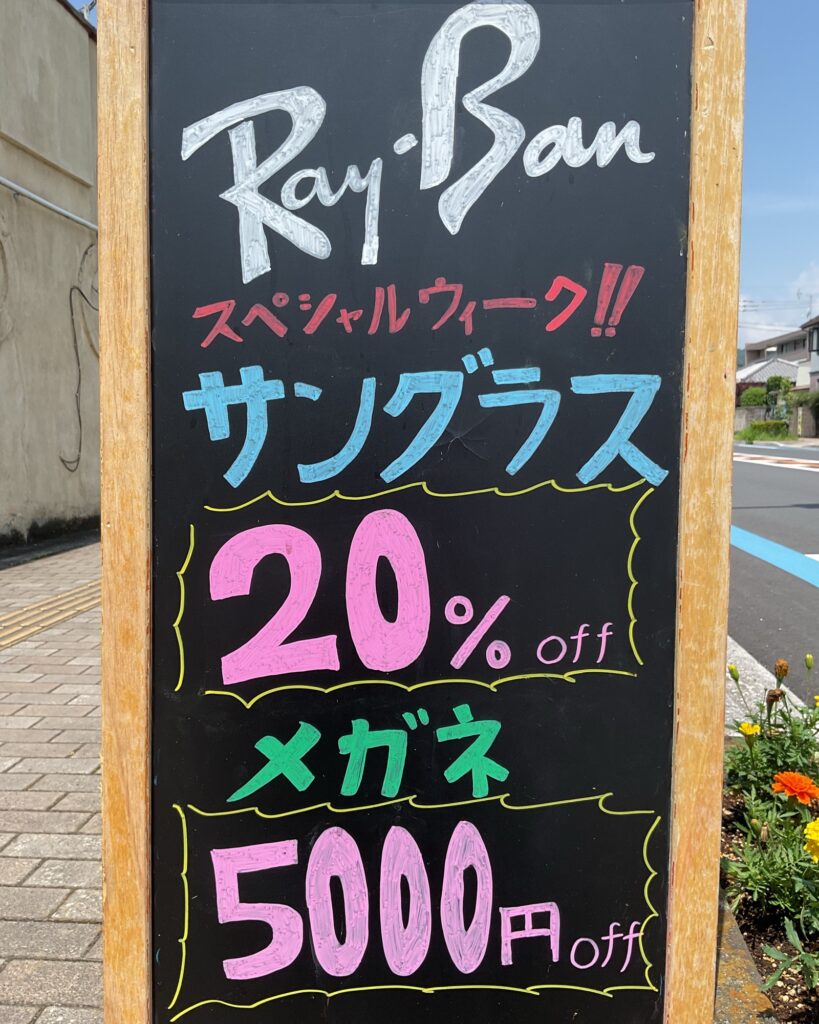 Ray-Ban
スペシャルウィーク!!
サングラス
20% off
メガネ
5000円 off